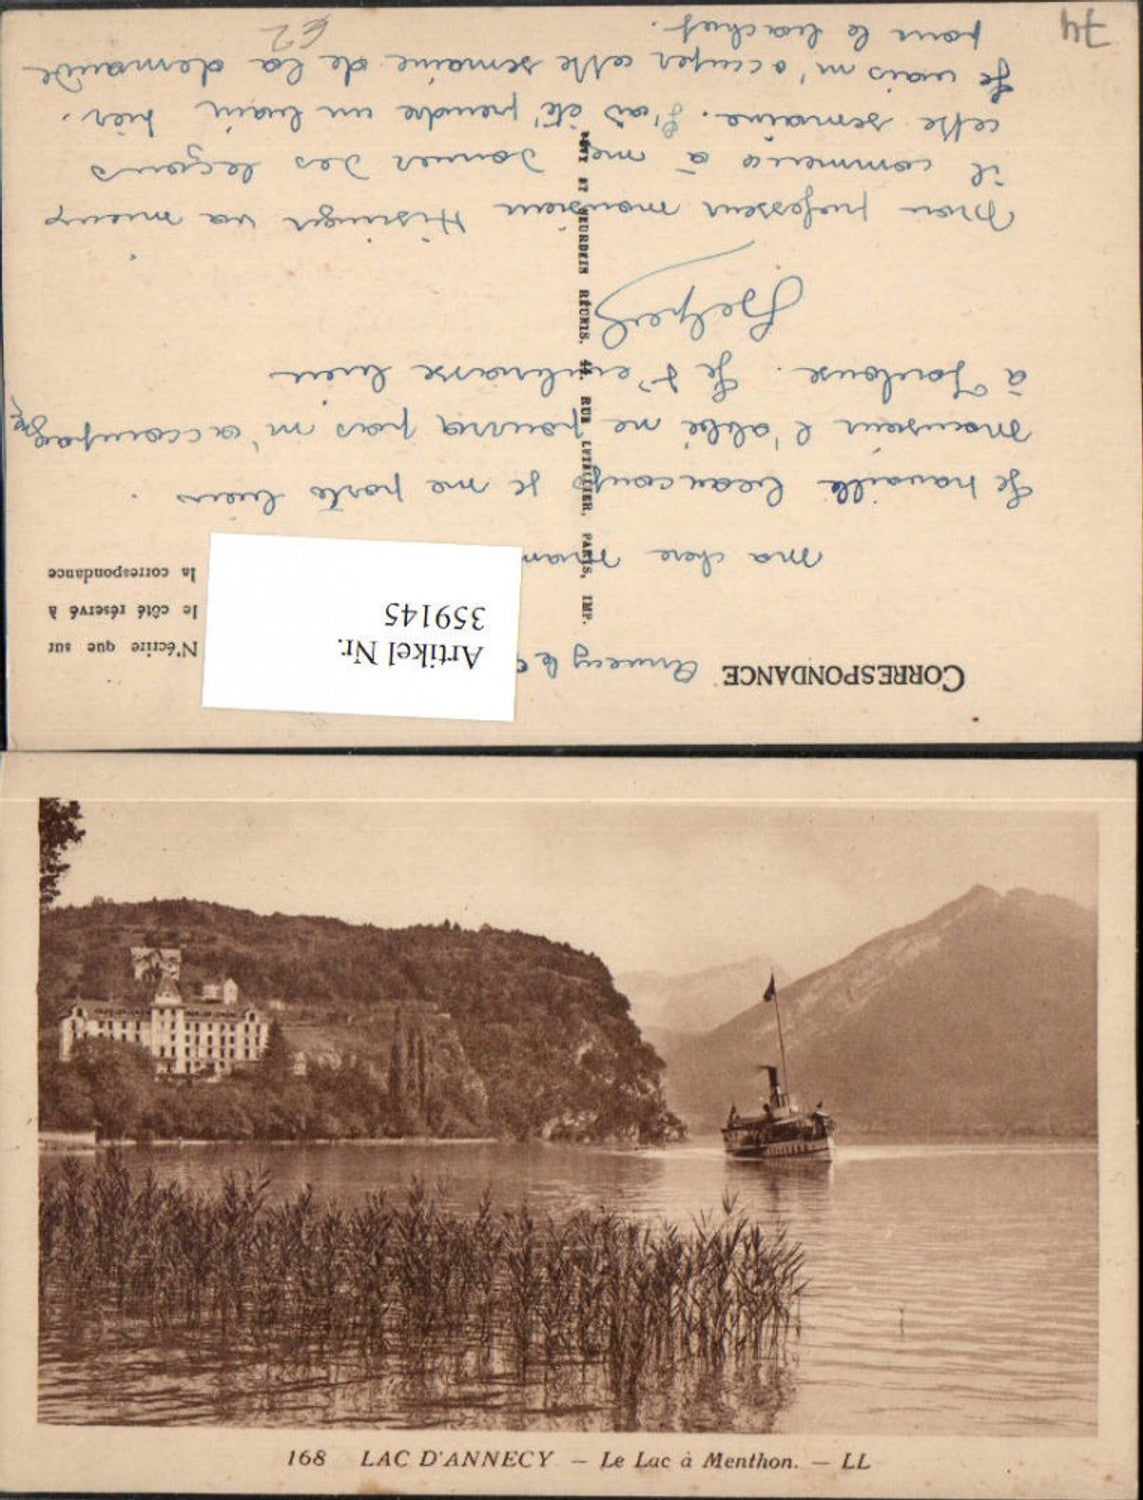 CORRESPONDANCE
Annecy le
N'écrire que sur
le côté réservé à
la correspondance
Artikel Nr.
359145
ma chere maman
Je travaille beaucoup je me porte bien.
monsieur l'abbé ne pourra pas m'accompagné
à Toulouse. Je t'embrasse bien
mon professeur monsieur va mieux
il commence à me donner des leçons
cette semaine. J'ai été prendre un bain hier.
Je vais m'occuper cette semaine de la demande
pour le bachot.
74
€2
LÉVY ET NEURDEIN RÉUNIS, 44, RUE LETELLIER, PARIS, IMP.
168 LAC D'ANNECY – Le Lac à Menthon. – LL